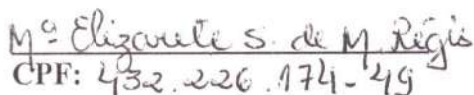 Mª Elizarete S. de M. Régis
CPF: 432.226.174-49